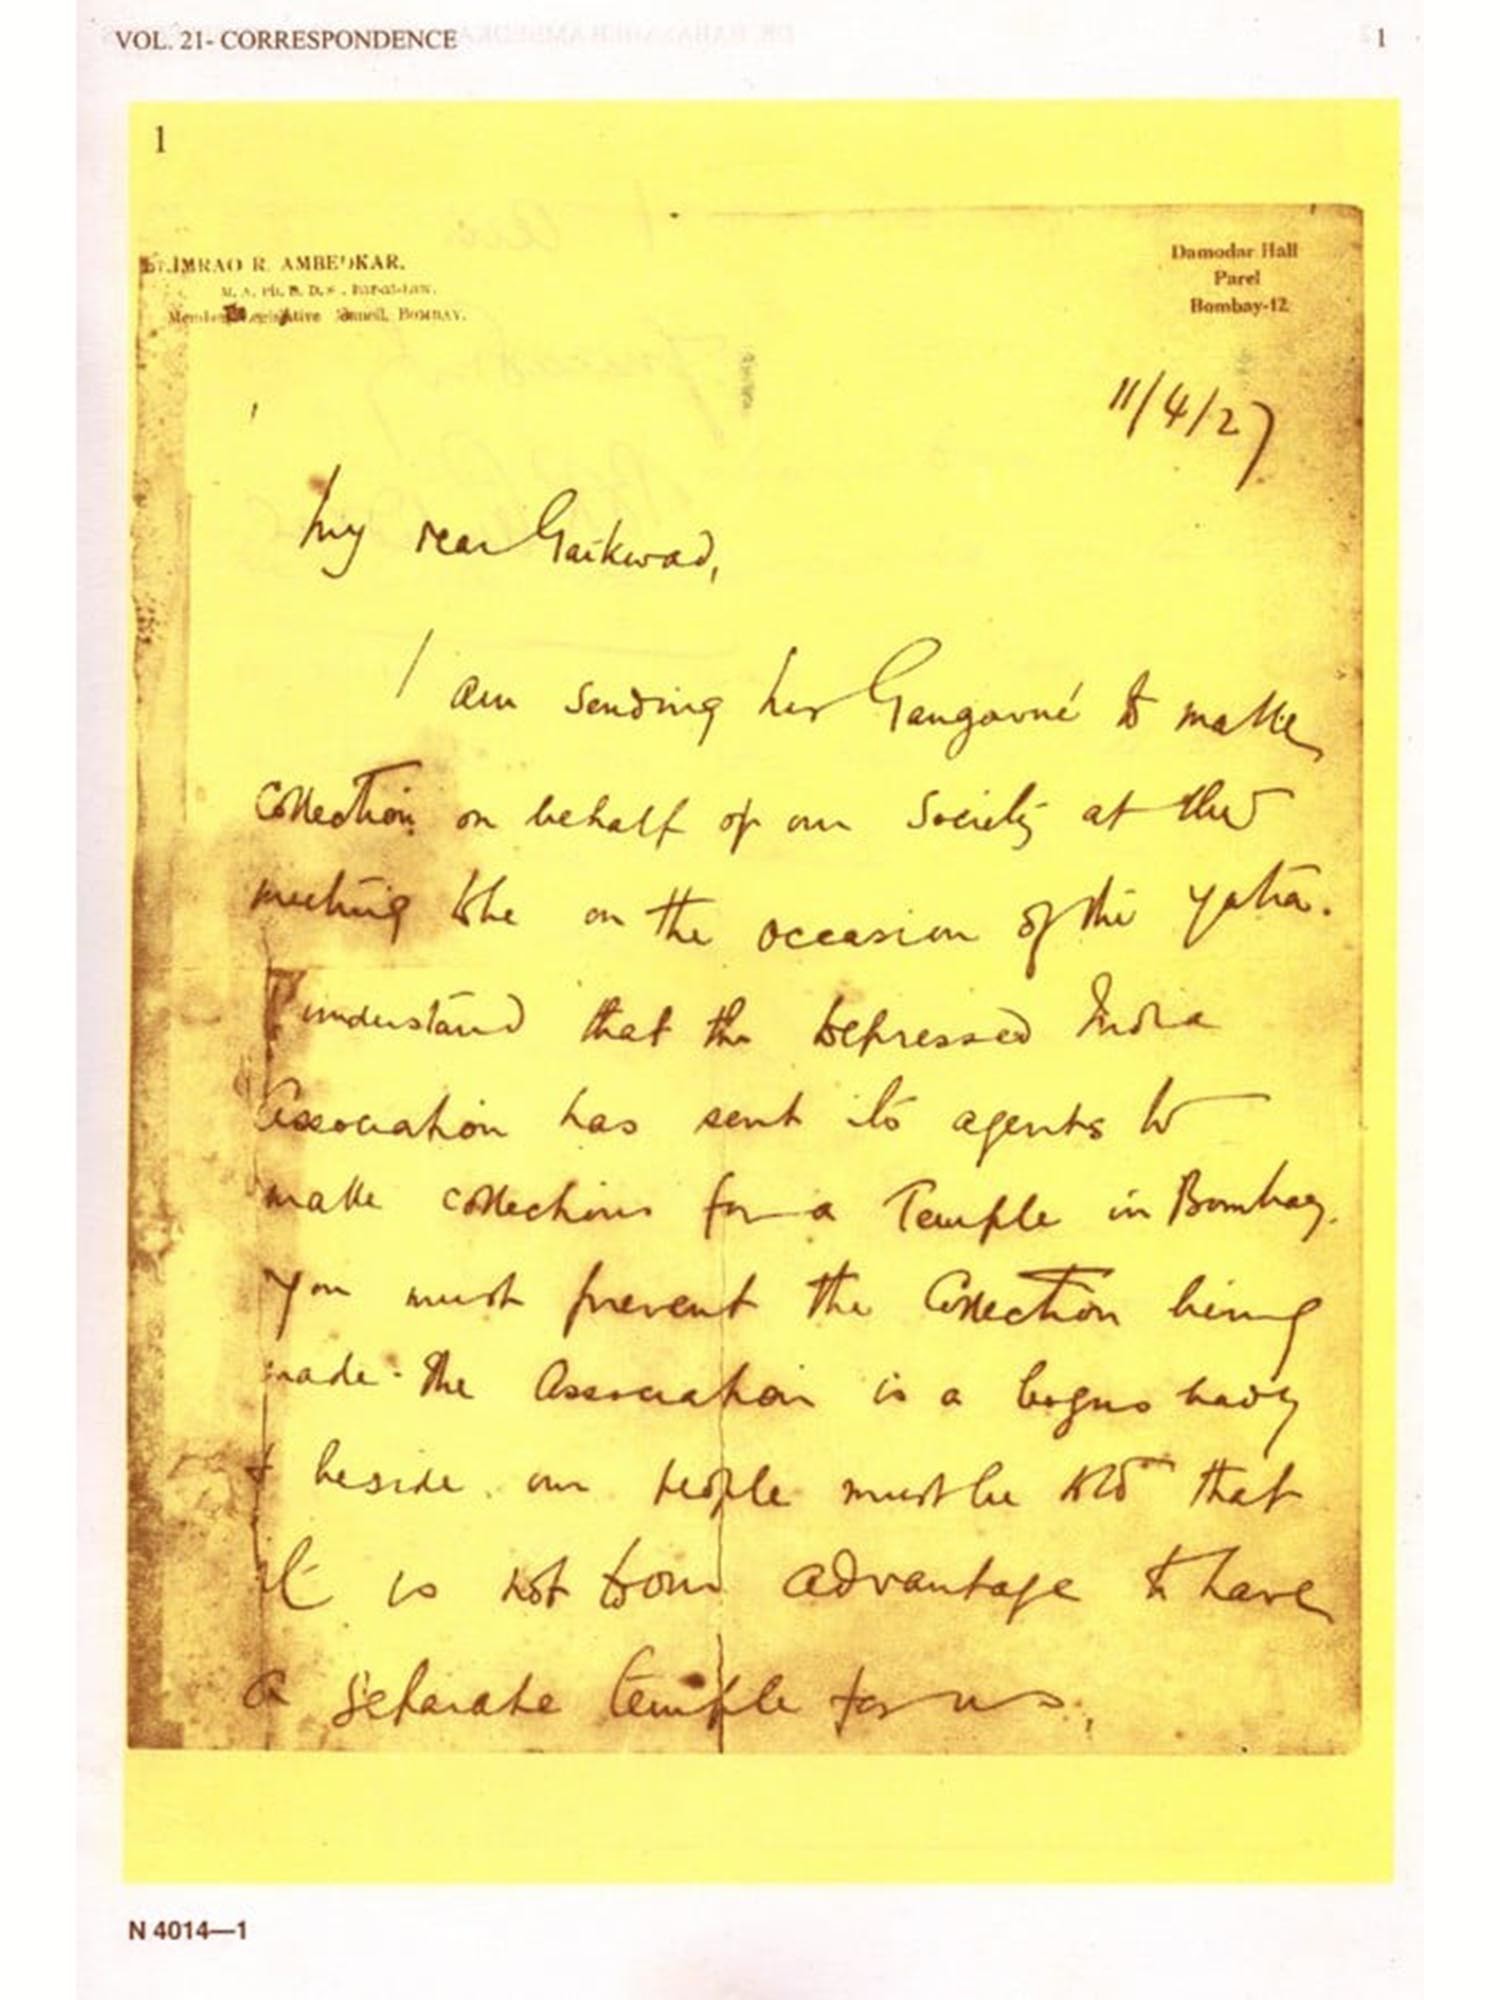 VOL. 21- CORRESPONDENCE 1
1
BHIMRAO R. AMBEDKAR. Damodar Hall
M. A. Ph. D. D. Sc. Bar-at-Law. Parel
Member Legislative Council, BOMBAY. Bombay-12
11/4/27
My dear Gaikwad,
I am sending Mr Gangavné to make
Collection on behalf of our Society at the
meeting to be on the occasion of the yatra.
I understand that the Depressed India
Association has sent its agents to
make collections for a Temple in Bombay.
You must prevent the Collection being
made. The Association is a bogus body
& beside our people must be told that
it is not to our advantage to have
a separate temple for us.
N 4014—1